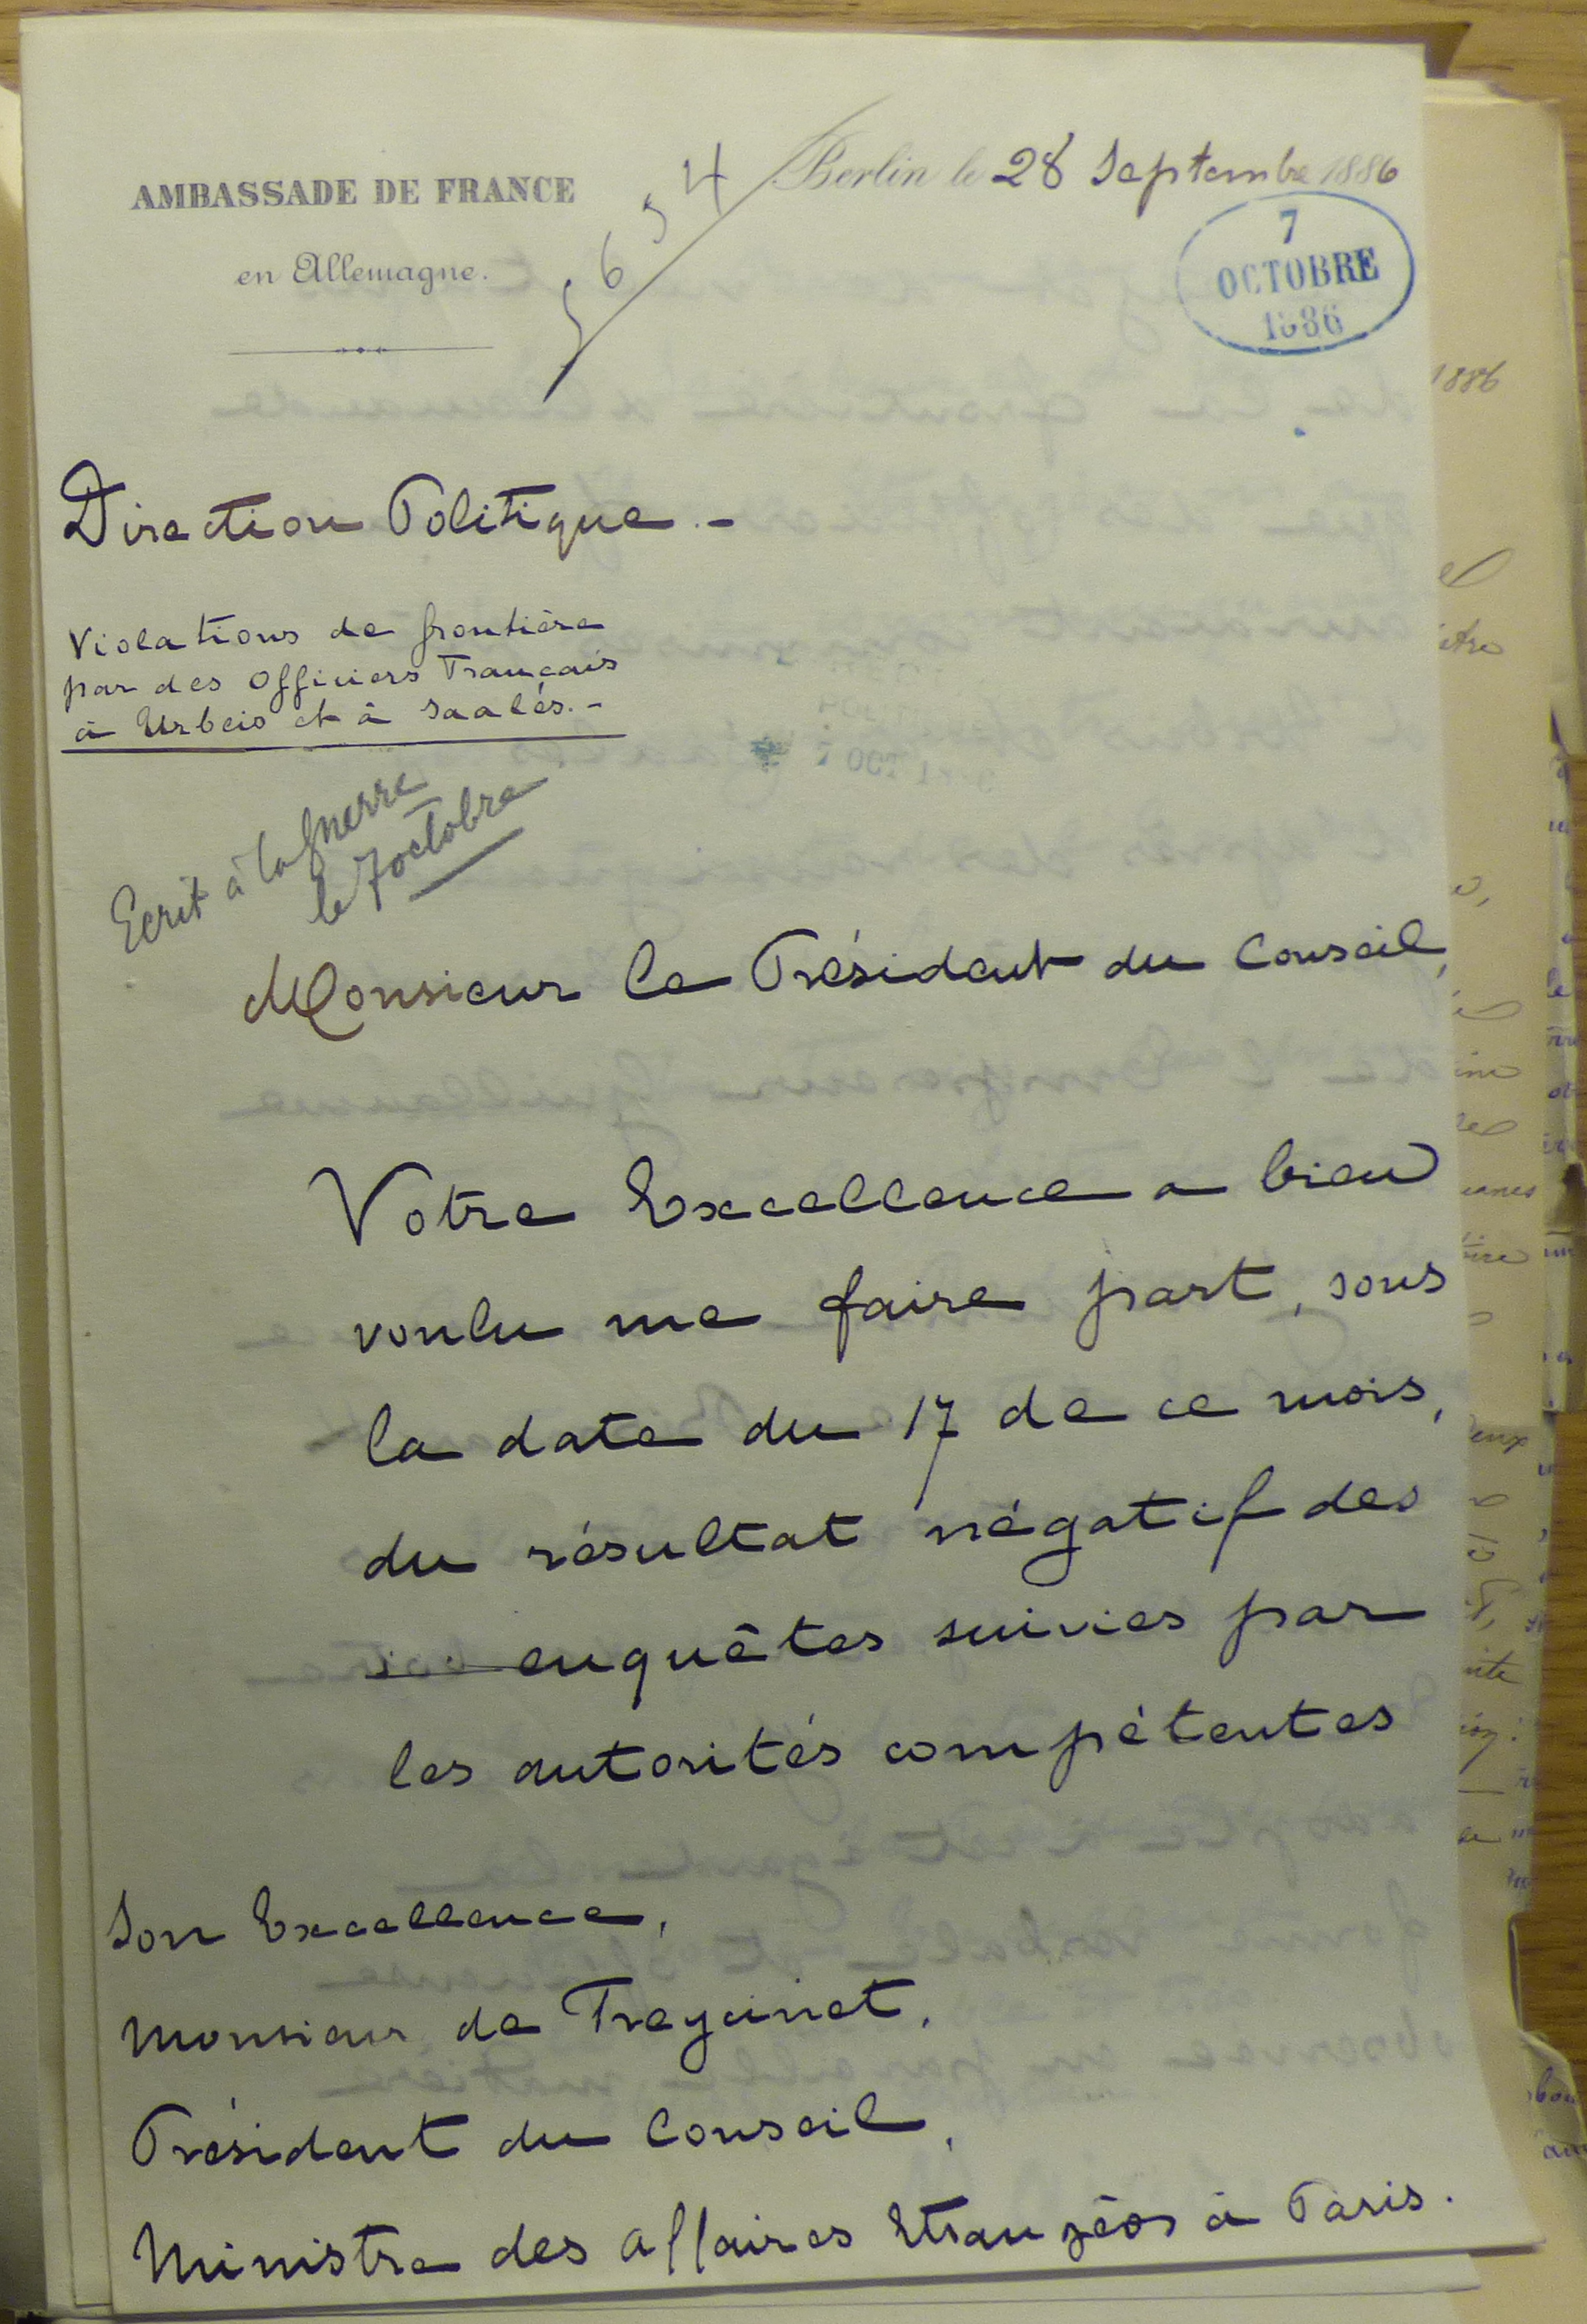 AMBASSADE DE FRANCE
en Allemagne.
Berlin le 28 Septembre 1886
5654
7
OCTOBRE
1886
Direction Politique.-
Violations de frontière
par des Officiers Français
à Urbeis et à Saalés.-
Ecrit à la Guerre
le 7 octobre
Monsieur le Président du Conseil,
Votre Excellence a bien
voulu me faire part, sous
la date du 17 de ce mois,
du résultat négatif des
enquêtes suivies par
les autorités compétentes
Son Excellence,
Monsieur de Freycinet,
Président du Conseil,
Ministre des Affaires Etrangères à Paris.
1886